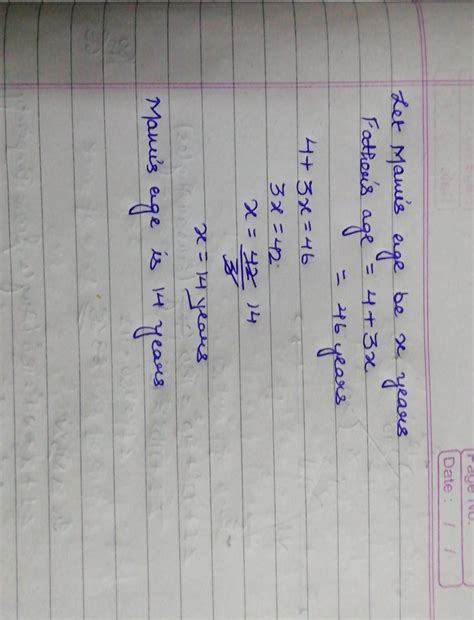 Page No.
Date : / /
Let Manu's age be x years
Father's age = 4 + 3x
= 46 years
4 + 3x = 46
3x = 42
x = 42 14
3
x = 14 years
Manu's age is 14 years